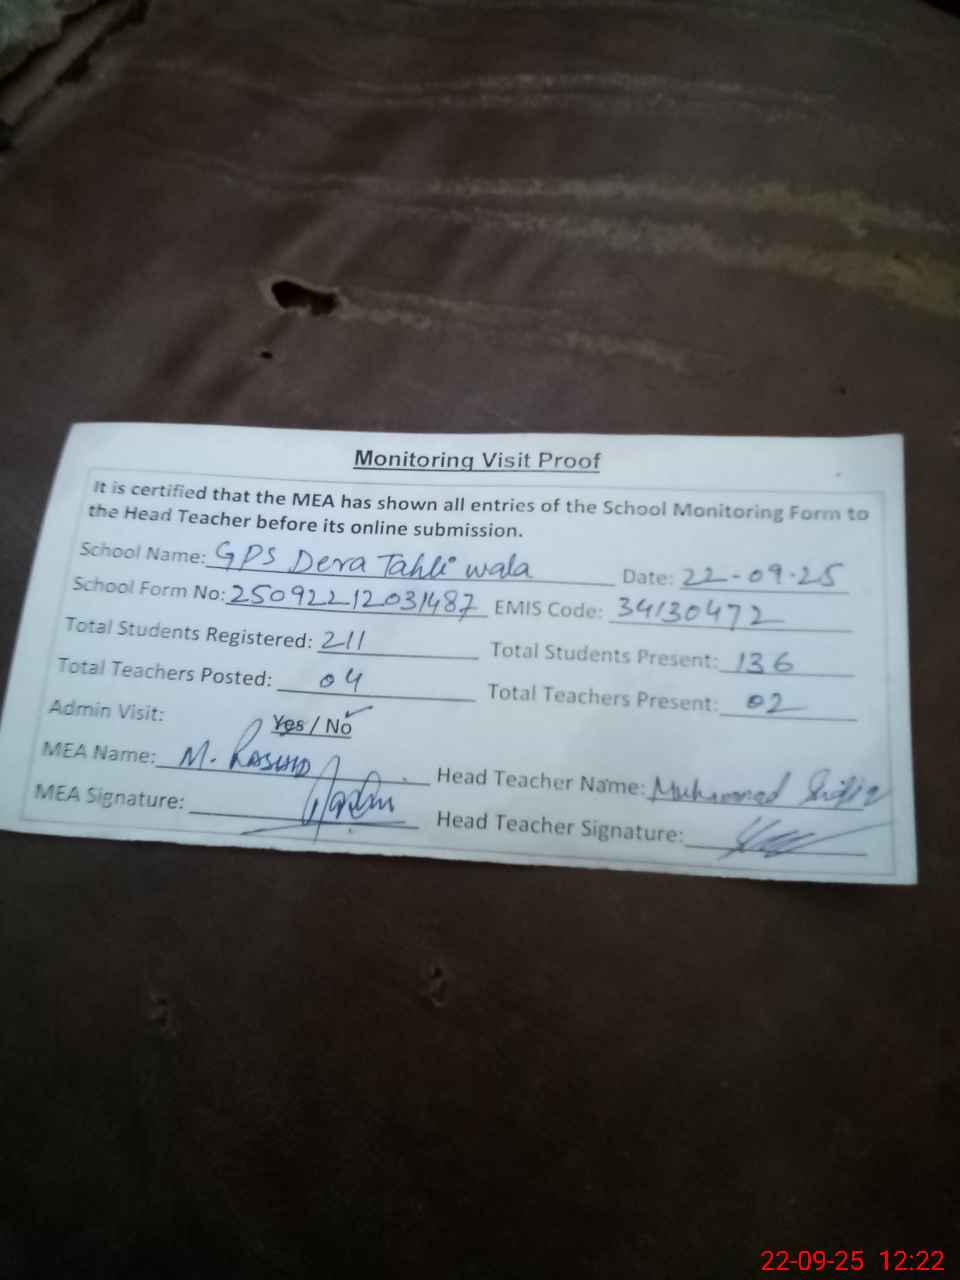 Monitoring Visit Proof
It is certified that the MEA has shown all entries of the School Monitoring Form to
the Head Teacher before its online submission.
School Name: GPS Dera Tahli wala Date: 22-09-25
School Form No: 25092212031487 EMIS Code: 34130472
Total Students Registered: 211 Total Students Present: 136
Total Teachers Posted: 04 Total Teachers Present: 02
Admin Visit: Yes / No
MEA Name: M. Rashid Head Teacher Name: Muhammad
MEA Signature: Head Teacher Signature:
22-09-25 12:22